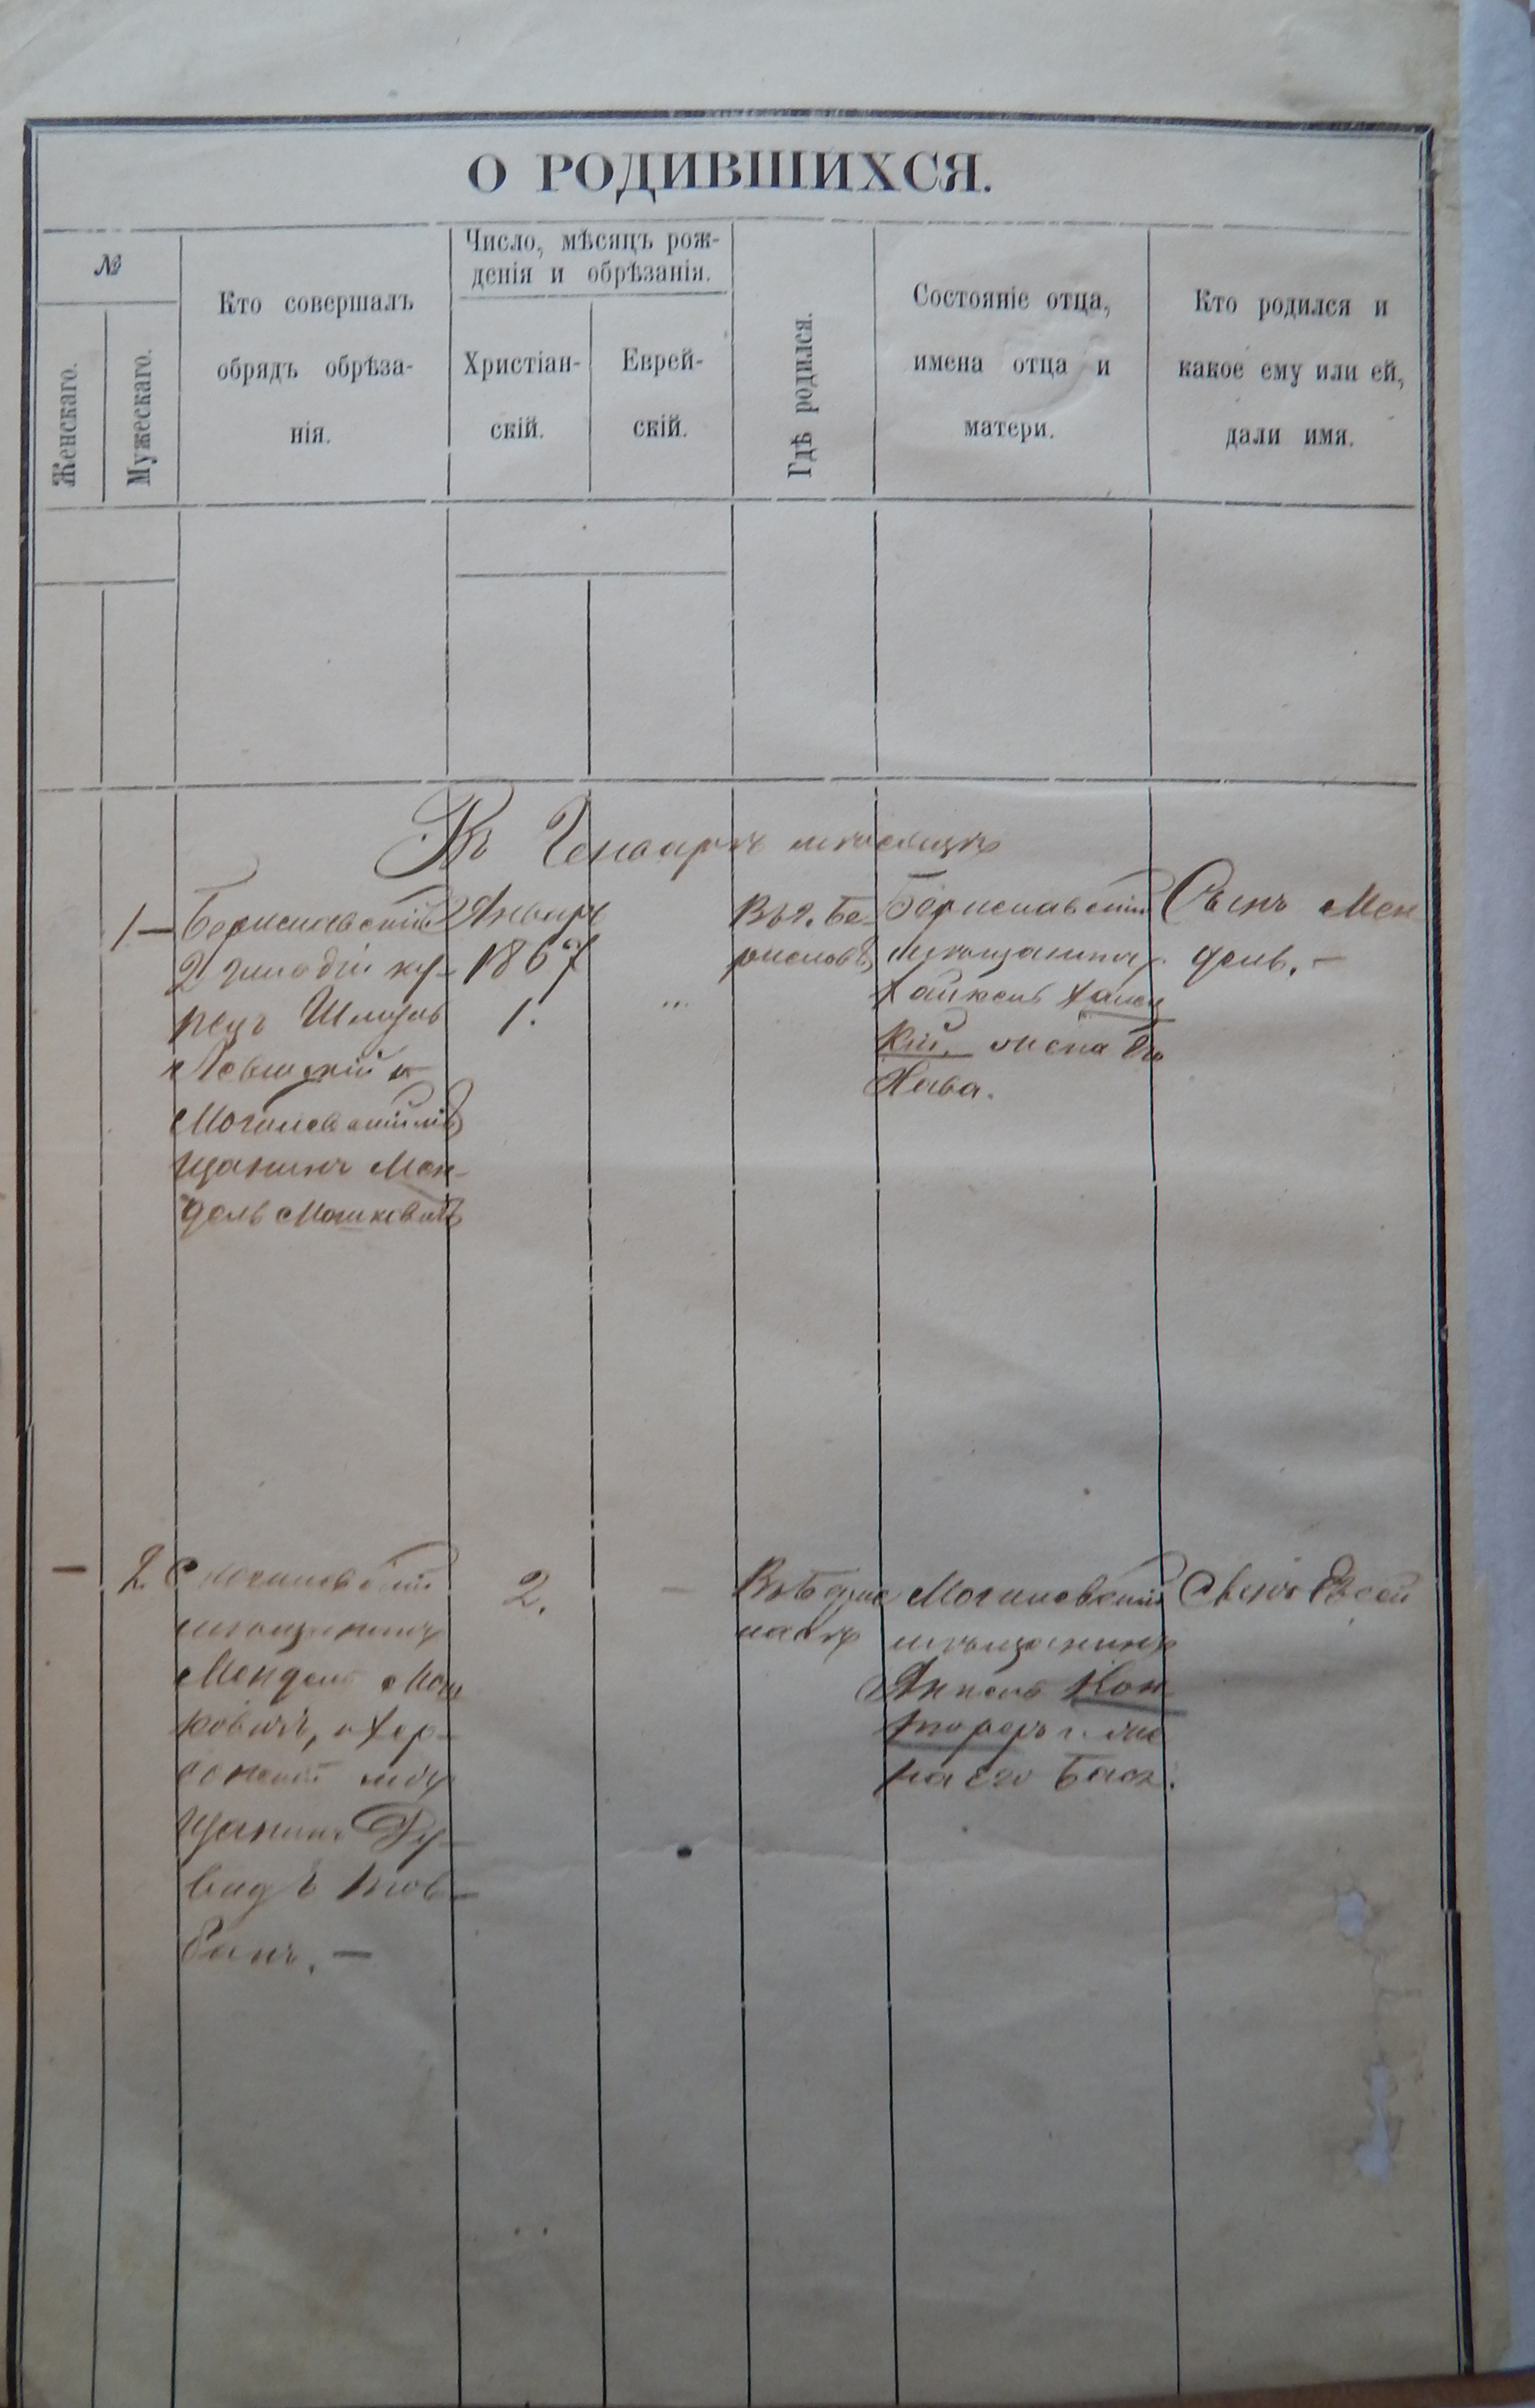 О РОДИВШИХСЯ.
№
Женскаго.
Мужескаго.
Кто совершалъ
обрядъ обрѣза-
нія.
Число, мѣсяцъ рож-
денія и обрѣзанія.
Христіан-
скій.
Еврей-
скій.
Гдѣ родился.
Состояніе отца,
имена отца и
матери.
Кто родился и
какое ему или ей,
дали имя.
Въ Генварѣ мѣсяцѣ
1 —
Бериславскій
2 гильдій ку-
пецъ
и
Могилевскій мѣ
щанинъ Мен-
дель Мошковичъ
Январь
1867
1.
Въ г. Бе-
риславѣ
Бериславскій
мѣщанинъ
Хаимъ
кій. жена его
Хава.
Сынъ Мен
дель. —
—
2
Могилевскій
мѣщанинъ
Мендель Мош
ковичъ, и Хер-
сонскій мѣ
щанинъ Ду-
видъ
2.
—
Въ Бери
славѣ
Могилевскій
мѣщанинъ
Янкель Кон
тореръ и же
на его Бася.
Сынъ